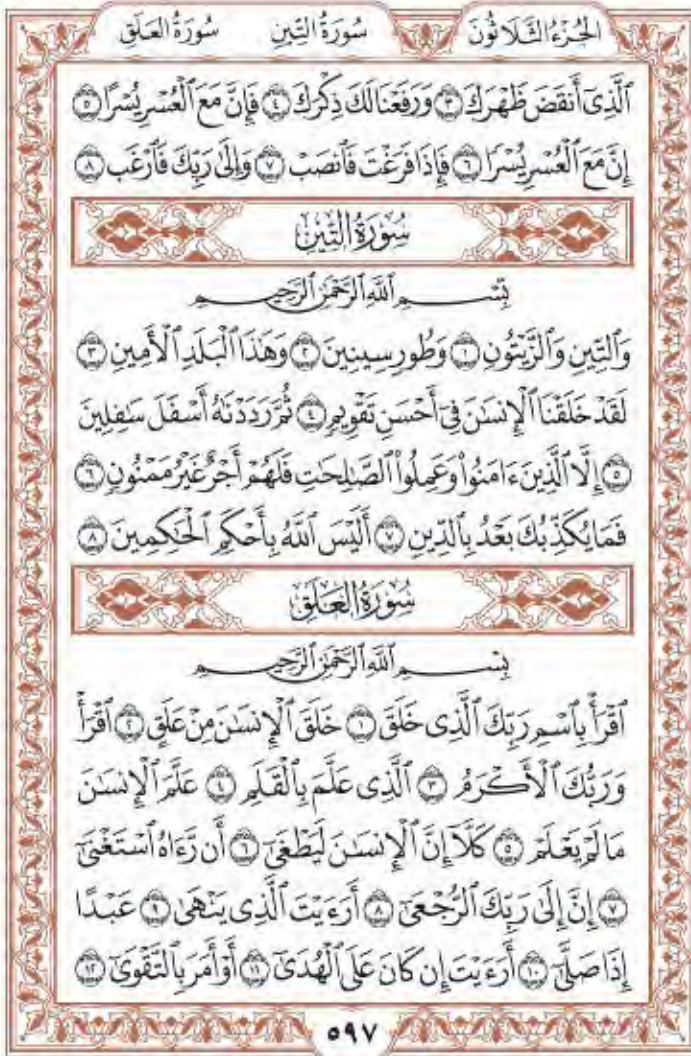 سُورَةُ العَلَق سُورَةُ التِّين الجُزْءُ الثَّلَاثُونَ
ٱلَّذِىٓ أَنقَضَ ظَهْرَكَ ٣ وَرَفَعْنَا لَكَ ذِكْرَكَ ٤ فَإِنَّ مَعَ ٱلْعُسْرِ يُسْرًا ٥
إِنَّ مَعَ ٱلْعُسْرِ يُسْرًا ٦ فَإِذَا فَرَغْتَ فَٱنصَبْ ٧ وَإِلَىٰ رَبِّكَ فَٱرْغَب ٨
سُورَةُ التِّينِ
بِسْمِ ٱللَّهِ ٱلرَّحْمَٰنِ ٱلرَّحِيمِ
وَٱلتِّينِ وَٱلزَّيْتُونِ ١ وَطُورِ سِينِينَ ٢ وَهَٰذَا ٱلْبَلَدِ ٱلْأَمِينِ ٣
لَقَدْ خَلَقْنَا ٱلْإِنسَٰنَ فِىٓ أَحْسَنِ تَقْوِيمٍ ٤ ثُمَّ رَدَدْنَٰهُ أَسْفَلَ سَٰفِلِينَ
٥ إِلَّا ٱلَّذِينَ ءَامَنُوا۟ وَعَمِلُوا۟ ٱلصَّٰلِحَٰتِ فَلَهُمْ أَجْرٌ غَيْرُ مَمْنُونٍ ٦
فَمَا يُكَذِّبُكَ بَعْدُ بِٱلدِّينِ ٧ أَلَيْسَ ٱللَّهُ بِأَحْكَمِ ٱلْحَٰكِمِينَ ٨
سُورَةُ العَلَقِ
بِسْمِ ٱللَّهِ ٱلرَّحْمَٰنِ ٱلرَّحِيمِ
ٱقْرَأْ بِٱسْمِ رَبِّكَ ٱلَّذِى خَلَقَ ١ خَلَقَ ٱلْإِنسَٰنَ مِنْ عَلَقٍ ٢ ٱقْرَأْ
وَرَبُّكَ ٱلْأَكْرَمُ ٣ ٱلَّذِى عَلَّمَ بِٱلْقَلَمِ ٤ عَلَّمَ ٱلْإِنسَٰنَ
مَا لَمْ يَعْلَمْ ٥ كَلَّآ إِنَّ ٱلْإِنسَٰنَ لَيَطْغَىٰٓ ٦ أَن رَّءَاهُ ٱسْتَغْنَىٰٓ
٧ إِنَّ إِلَىٰ رَبِّكَ ٱلرُّجْعَىٰٓ ٨ أَرَءَيْتَ ٱلَّذِى يَنْهَىٰ ٩ عَبْدًا
إِذَا صَلَّىٰٓ ١٠ أَرَءَيْتَ إِن كَانَ عَلَى ٱلْهُدَىٰٓ ١١ أَوْ أَمَرَ بِٱلتَّقْوَىٰٓ ١٢
٥٩٧